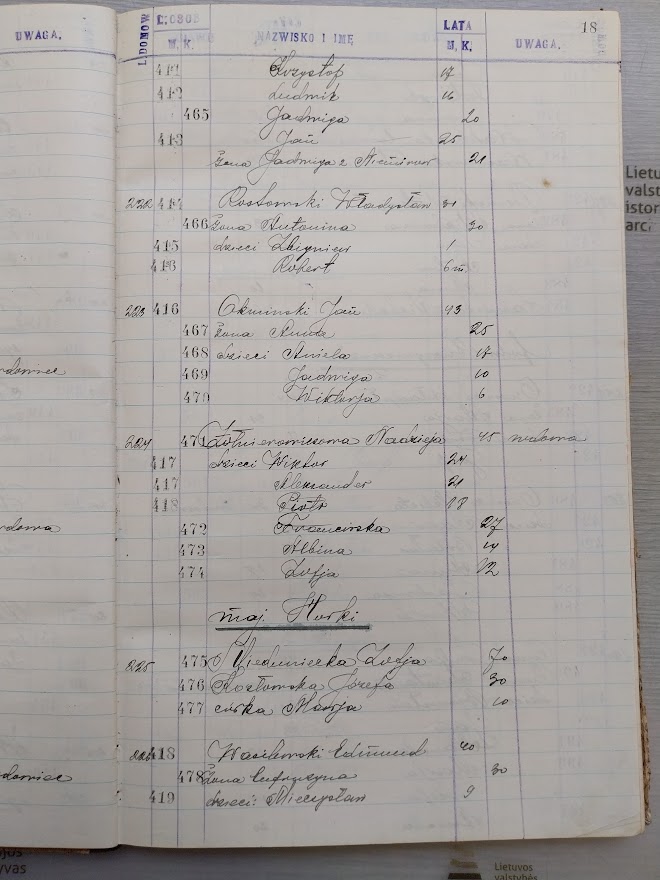 UWAGA.
18
L. DOMÓW L: OSÓB NAZWISKO I IMĘ LATA UWAGA.
M. K. M. K.
411 Krzysztof 17
412 Ludwik 16
465 Jadwiga 20
413 Jan 25
żona Jadwiga z 21
222 414 Rostowski Władysław 31
466 żona Antonina 30
415 dzieci Zbigniew 1
416 Robert 6 m
223 416 Okminski Jan 43
467 żona Anna 25
468 dzieci Aniela 17
469 Jadwiga 10
470 Wiktorja 6
224 471 Żołnierowiczowa Nadzieja 45 wdowa
417 dzieci Wiktor 24
417 Aleksander 21
418 Piotr 18
472 Franciszka 27
473 Albina 14
474 Zofja 12
maj. Hurki
225 475 Zofja 70
476 Kozłowska Józefa 30
477 córka Marja 10
226 418 Wasilewski Edmund 40
478 żona Eufrozyna 30
419 dzieci: Mieczysław 9
Lietu
valst
istor
arc
Lietuvos
valstybės